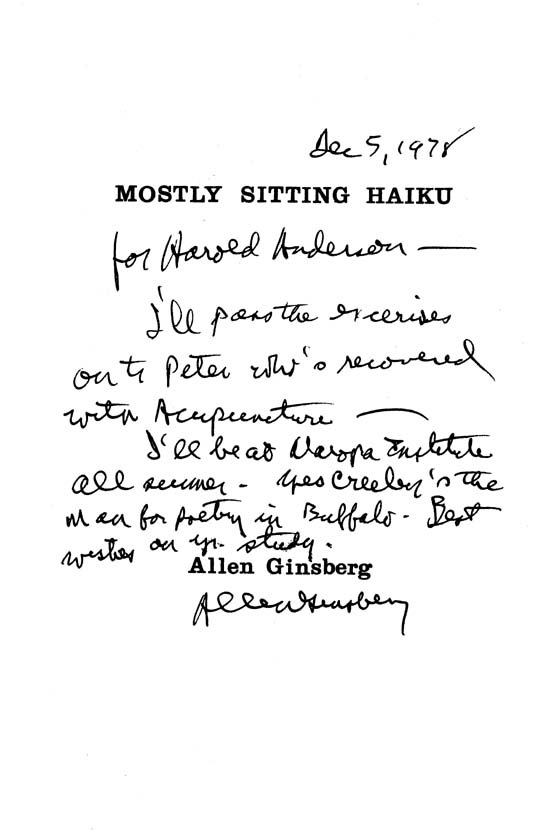 Dec 5, 1978
MOSTLY SITTING HAIKU
for Harold Anderson —
I'll pass the excerises
on to Peter who's recovered
with Acupuncture —
I'll be at Naropa Institute
all summer - Yes Creeley's the
man for poetry in Buffalo - Best
wishes on yr. study.
Allen Ginsberg
Allen Ginsberg